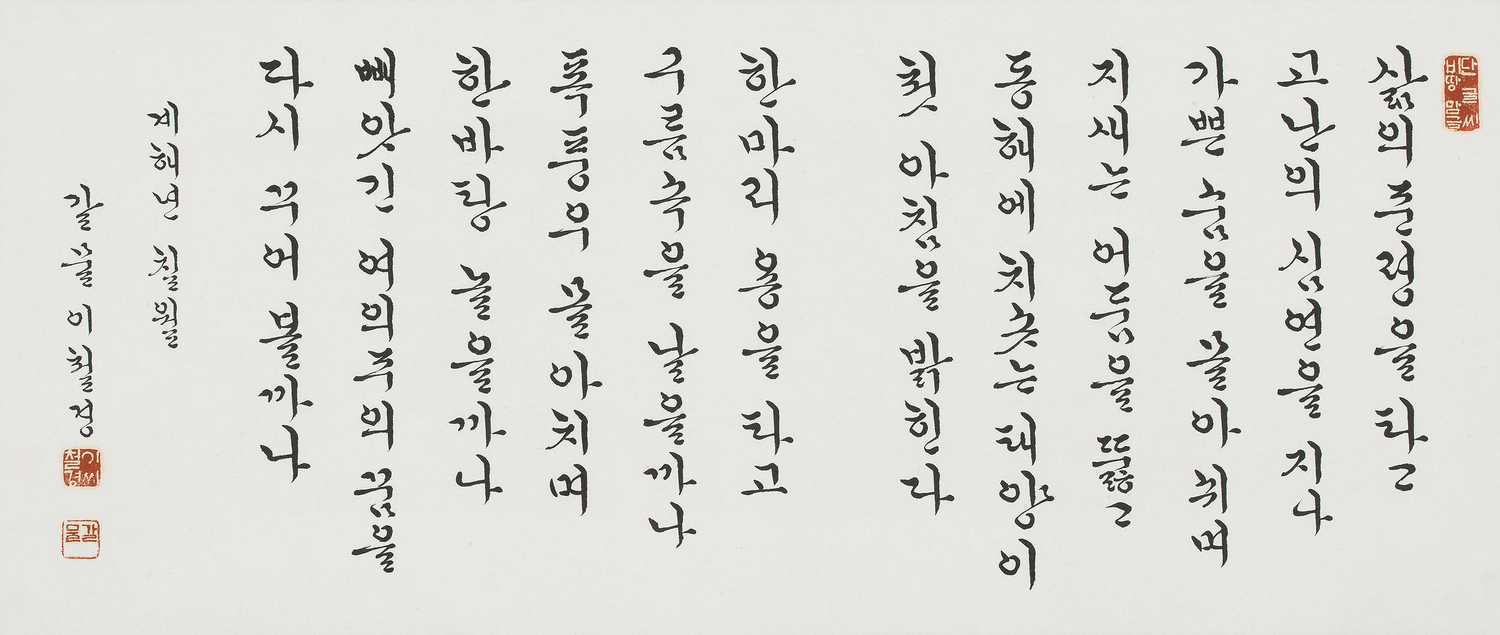 삶의 준령을 타고
고난의 심연을 지나
가쁜 숨을 몰아 쉬며
지새는 어둠을 뚫고
동해에 치솟는 태양이
첫 아침을 밝힌다
한마리 용을 타고
구름속을 날을까나
폭풍우 몰아치며
한바탕 놀을까나
빼앗긴 여의주의 꿈을
다시 꾸어 볼까나
계해년 칠월
갈물 이철경
이씨
철경
갈물